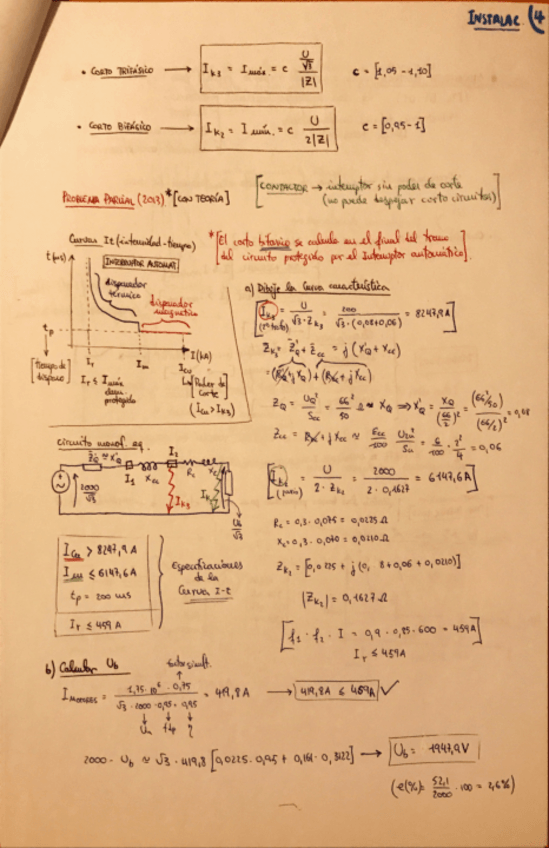 INSTALAC. (4
• CORTO TRIFÁSICO → I_k3 = I máx. = c (U/√3)/|Z|   c = [1,05 - 1,10]
• CORTO BIFÁSICO → I_k2 = I mín. = c U/(2|Z|)   c = [0,95 - 1]
[CONTACTOR → interruptor sin poder de corte
(no puede despejar cortocircuitos)]
PROBLEMA PARCIAL (2013)* [CON TEORÍA]
*[El corto bifásico se calcula en el final del tramo
del circuito protegido por el interruptor automático.]
Curvas It (intensidad-tiempo)
t(ms)
INTERRUPTOR AUTOMAT
disparador
térmico
disparador
magnético
t_p
[tiempo de
disparo]
I_r
I_m
I_cu
I(kA)
I_r ≤ I máx
protegido
↳ [Poder de
corte]
(I_cu > I_k3)
a) Dibuje la curva característica
[I_k3 = U/(√3·Z_k3) = 2000/(√3·(0,08+0,06)) = 8247,9A]
Z_k3 = Z'_Q + Z_cc = j(X'_Q + X_cc)
= (R_Q + jX_Q) + (R_cc + jX_cc)
Z_Q = U_Q²/S_cc = 66²/50 Ω ≃ X_Q ⇒ X'_Q = X_Q/(66/2)² = (66²/50)/(66/2)² = 0,08
Z_cc = R_cc + jX_cc ≃ ε_cc/100 · U_2n²/S_n = 6/100 · 2²/4 = 0,06
circuito monof. eq.
Z'_Q ≃ X'_Q
I_1
X_cc
I_2
R_L
X_L
2000/√3
I_k3
I_k2
U_b/√3
[I_k2 = U/(2·Z_k2) = 2000/(2·0,1627) = 6147,6A]
R_L = 0,3·0,075 = 0,0225 Ω
X_L = 0,3·0,070 = 0,0210 Ω
Z_k2 = [0,0225 + j(0,08+0,06+0,0210)]
|Z_k2| = 0,1627 Ω
I_cu > 8247,9A
I_m ≤ 6147,6A
t_p = 200 ms
I_r ≤ 459A
Especificaciones
de la
Curva I-t
[f_1 · f_2 · I = 0,9 · 0,85 · 600 = 459A]
I_r ≤ 459A
b) Calcular U_b
factor simult.
I_MOTORES = (1,75·10⁶·0,75)/(√3·2000·0,95·0,95) = 419,8A → 419,8A ≤ 459A ✓
U_n   fdp   η
2000 - U_b ≃ √3·419,8 [0,0225·0,95 + 0,161·0,3122] → U_b = 1947,9V
(e(%) = 52,1/2000 · 100 = 2,6%)